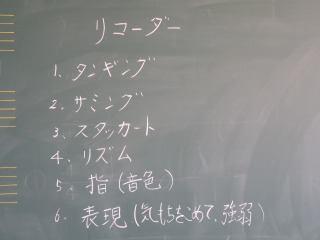 リコーダー
1. タンギング
2. サミング
3. スタッカート
4. リズム
5. 指(音色)
6. 表現(気もちをこめて、強弱)